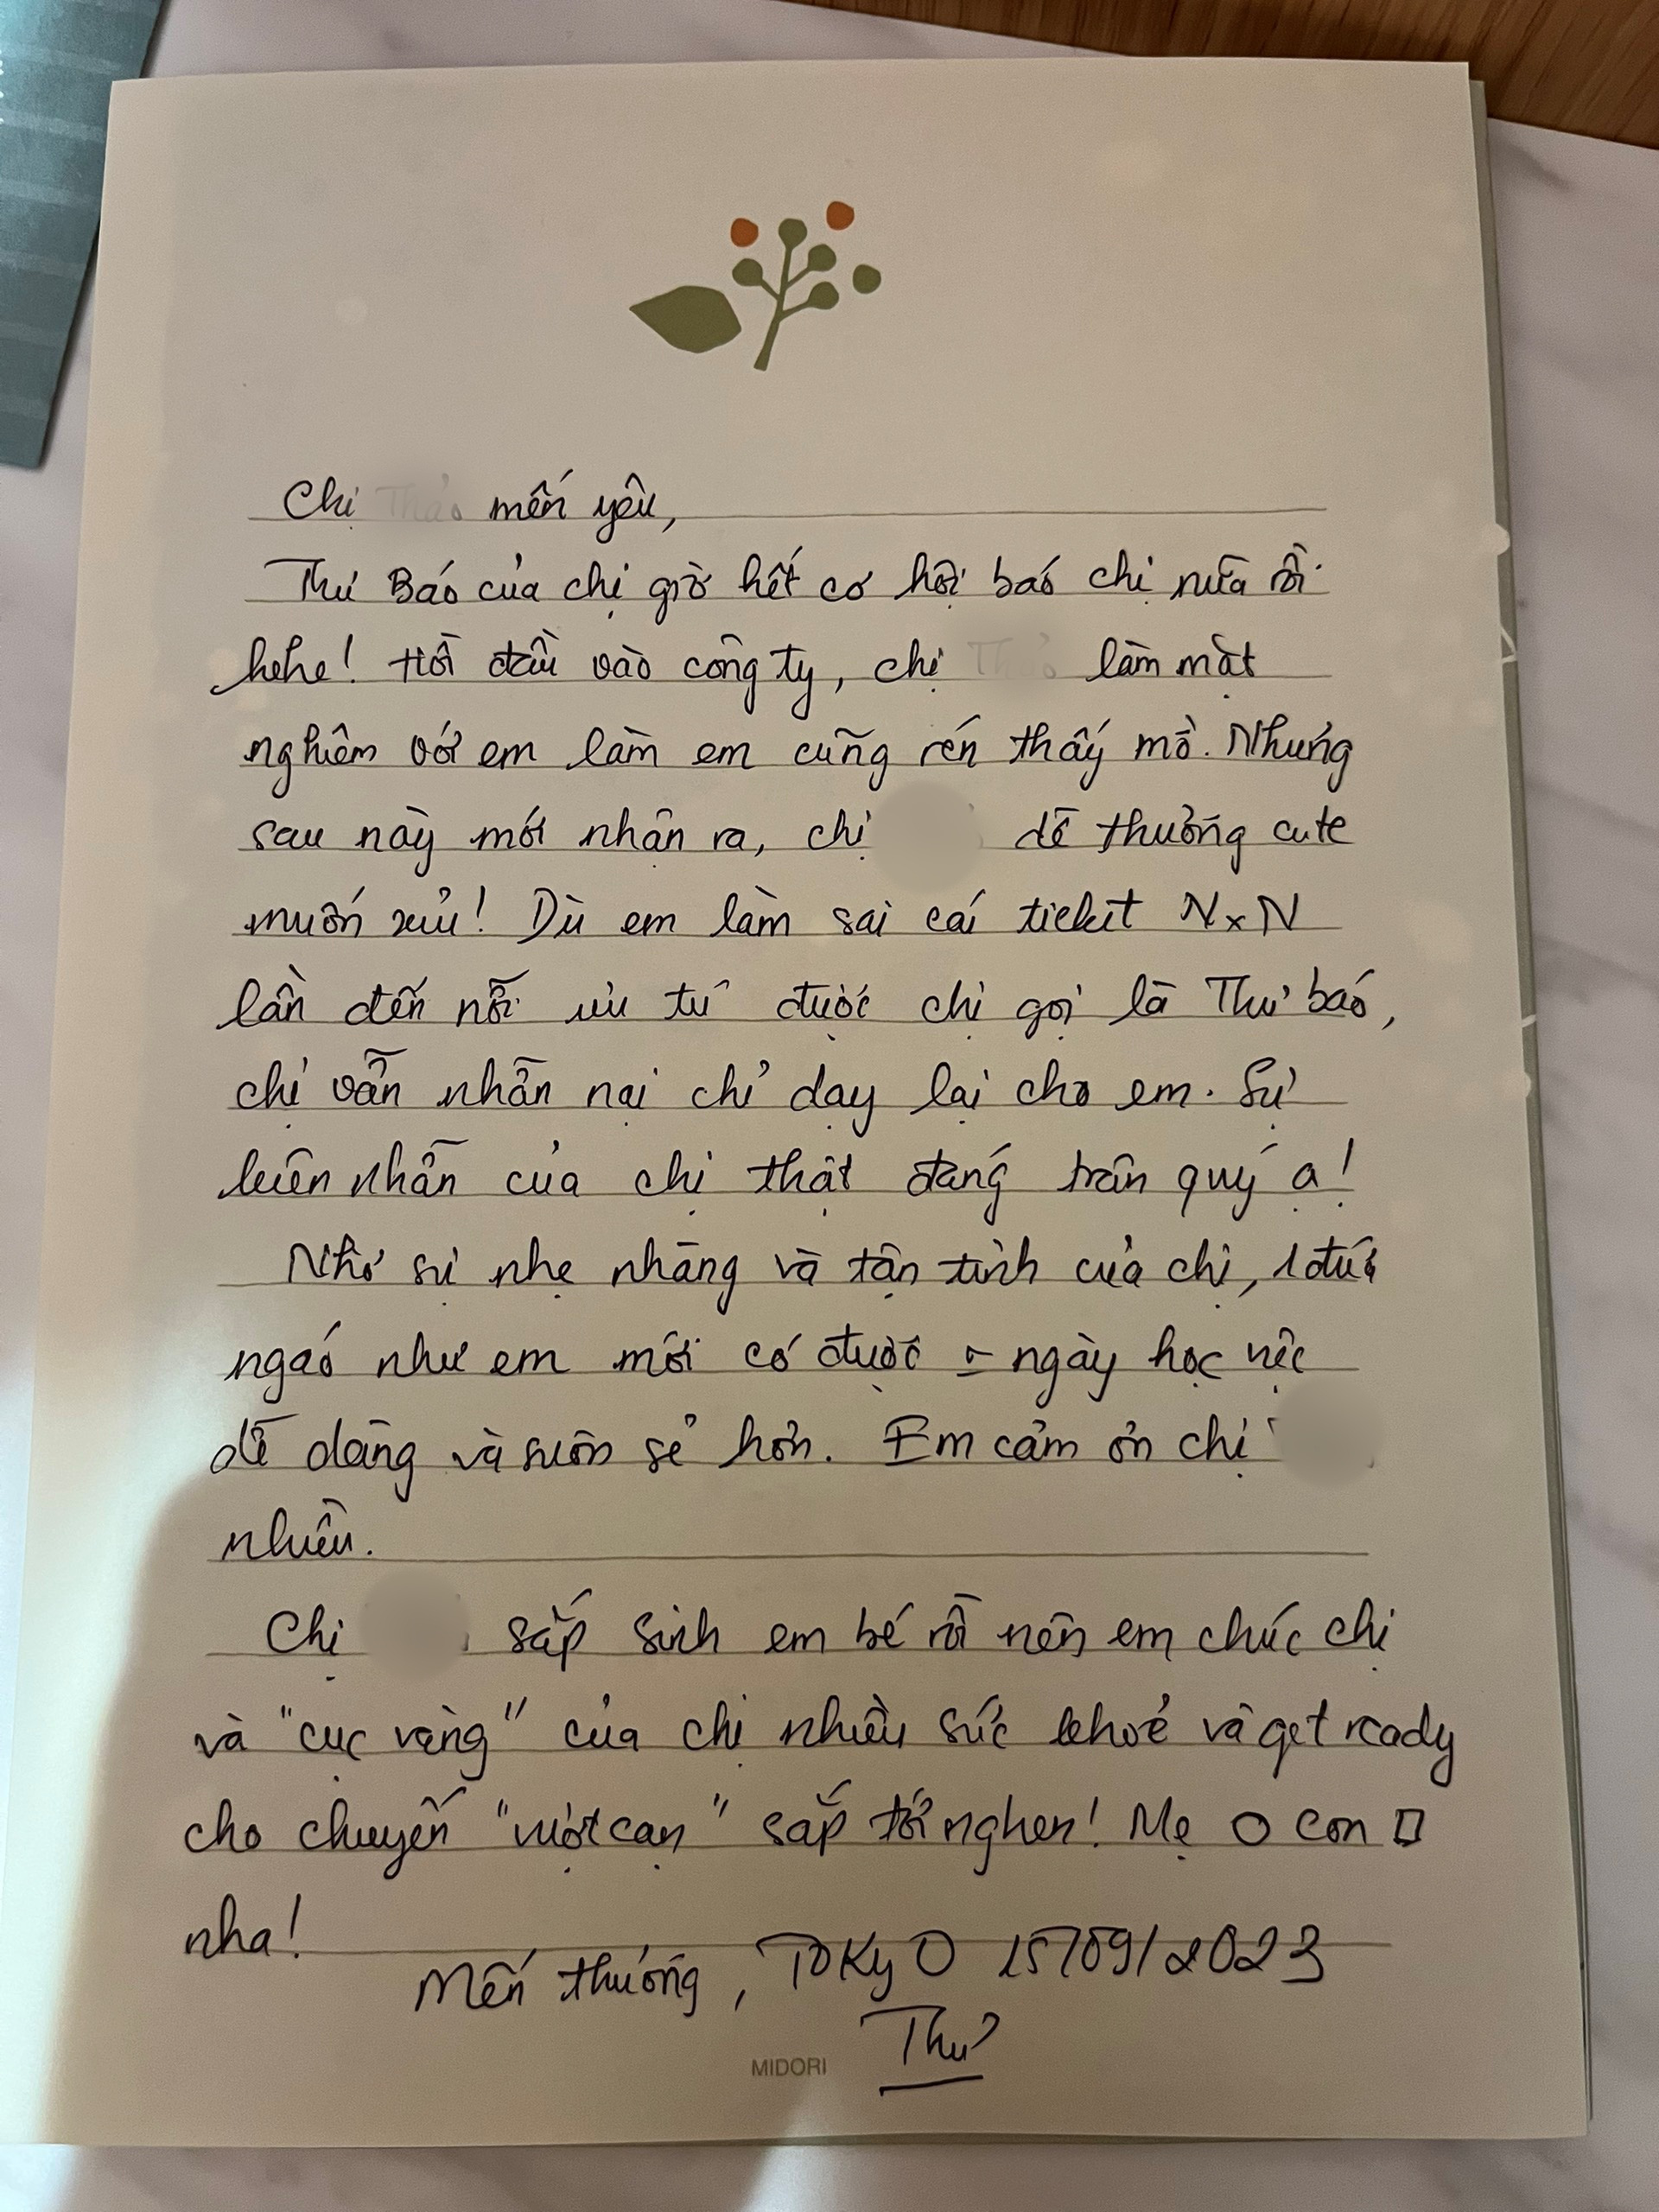 Chị mến yêu,
Thư Báo của chị giờ hết cơ hội báo chị nữa rồi
hehe! Hồi đầu vào công ty, chị làm mặt
nghiêm với em làm em cũng rén thấy mồ. Nhưng
sau này mới nhận ra, chị dễ thương cute
muốn xỉu! Dù em làm sai cái tickit N×N
lần đến nỗi ưu tư được chị gọi là Thư báo,
chị vẫn nhẫn nại chỉ dạy lại cho em. Sự
kiên nhẫn của chị thật đáng trân quý ạ!
Nhờ sự nhẹ nhàng và tận tình của chị, 1 đứa
ngáo như em mới có được ngày học việc
dễ dàng và suôn sẻ hơn. Em cảm ơn chị
nhiều.
Chị sắp sinh em bé rồi nên em chúc chị
và "cục vàng" của chị nhiều sức khoẻ và get ready
cho chuyến "vượt cạn" sắp tới nghen! Mẹ O con □
nha!
Mến thương, TOKyO 15/09/2023
Thư
MIDORI